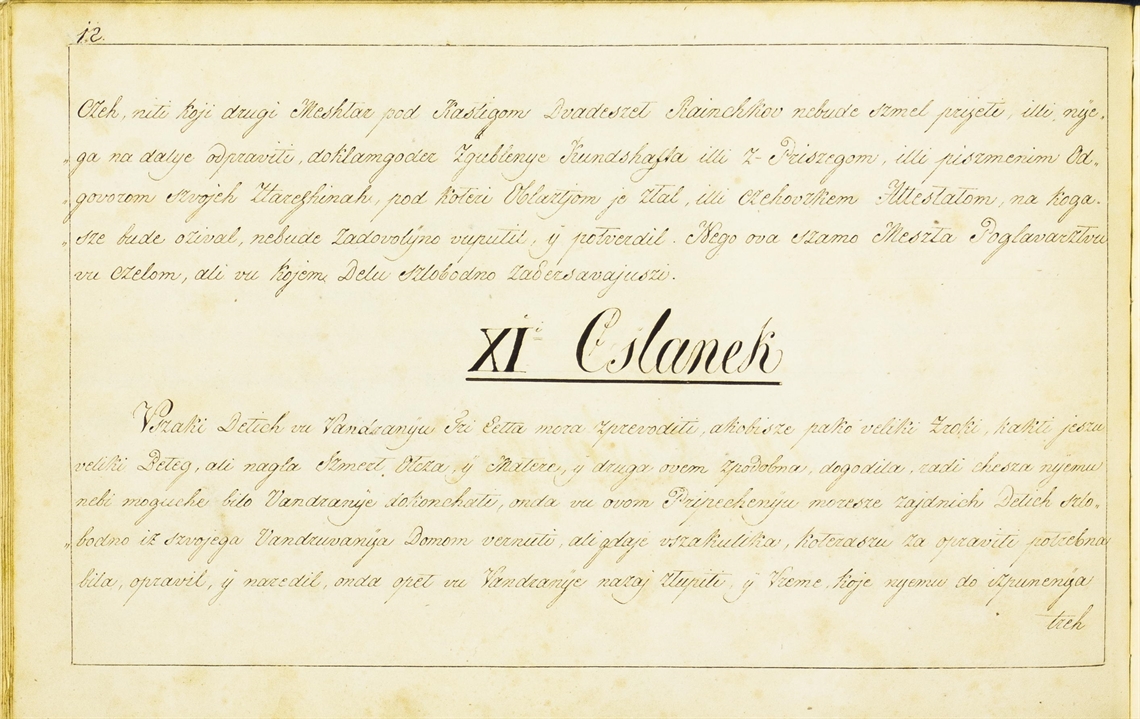 12.
Czeh, niti koji drugi Meshtar pod Kastigom Dvadeszet Rainchkov nebude szmel prijeti, illi nye-
„ga na dalye odpraviti, doklamgoder Zgublenye Kundshafta illi z-Priszegom, illi piszmenim Od-
„govorom szvojeh Ztareshinah, pod koteri Oblaztjom je ztal, illi czehovzkem Attestatom, na koga-
„sze bude ozival, nebude zadovolyno vuputil, ÿ potverdil. Nego ova szamo Meszta Poglavarztvu
vu czelom, ali vu kojem Delu szlobodno zadersavajuszi.
XI Cslanek
Vszaki Detich vu Vandranyu Tri Letta mora zprevoditi, akobisze pako veliki Zroki, kakti jeszu
veliki Beteg, ali nagla Szmert Otcza, ÿ Matere, ÿ druga ovem zpodobna, dogodila, radi chesza nyemu
nebi moguche bilo Vandranye dokonchati, onda vu ovom Pripecheniju moresze zajdnich Detich szlo-
„bodno iz szvojega Vandruvanya Domom vernuti, ali gdaje vszakulika, koteraszu za opraviti potrebna
bila, opravil, ÿ naredil, onda opet vu Vandranye nazaj ztupiti, ÿ Vreme, koje nyemu do izpunenya
treh